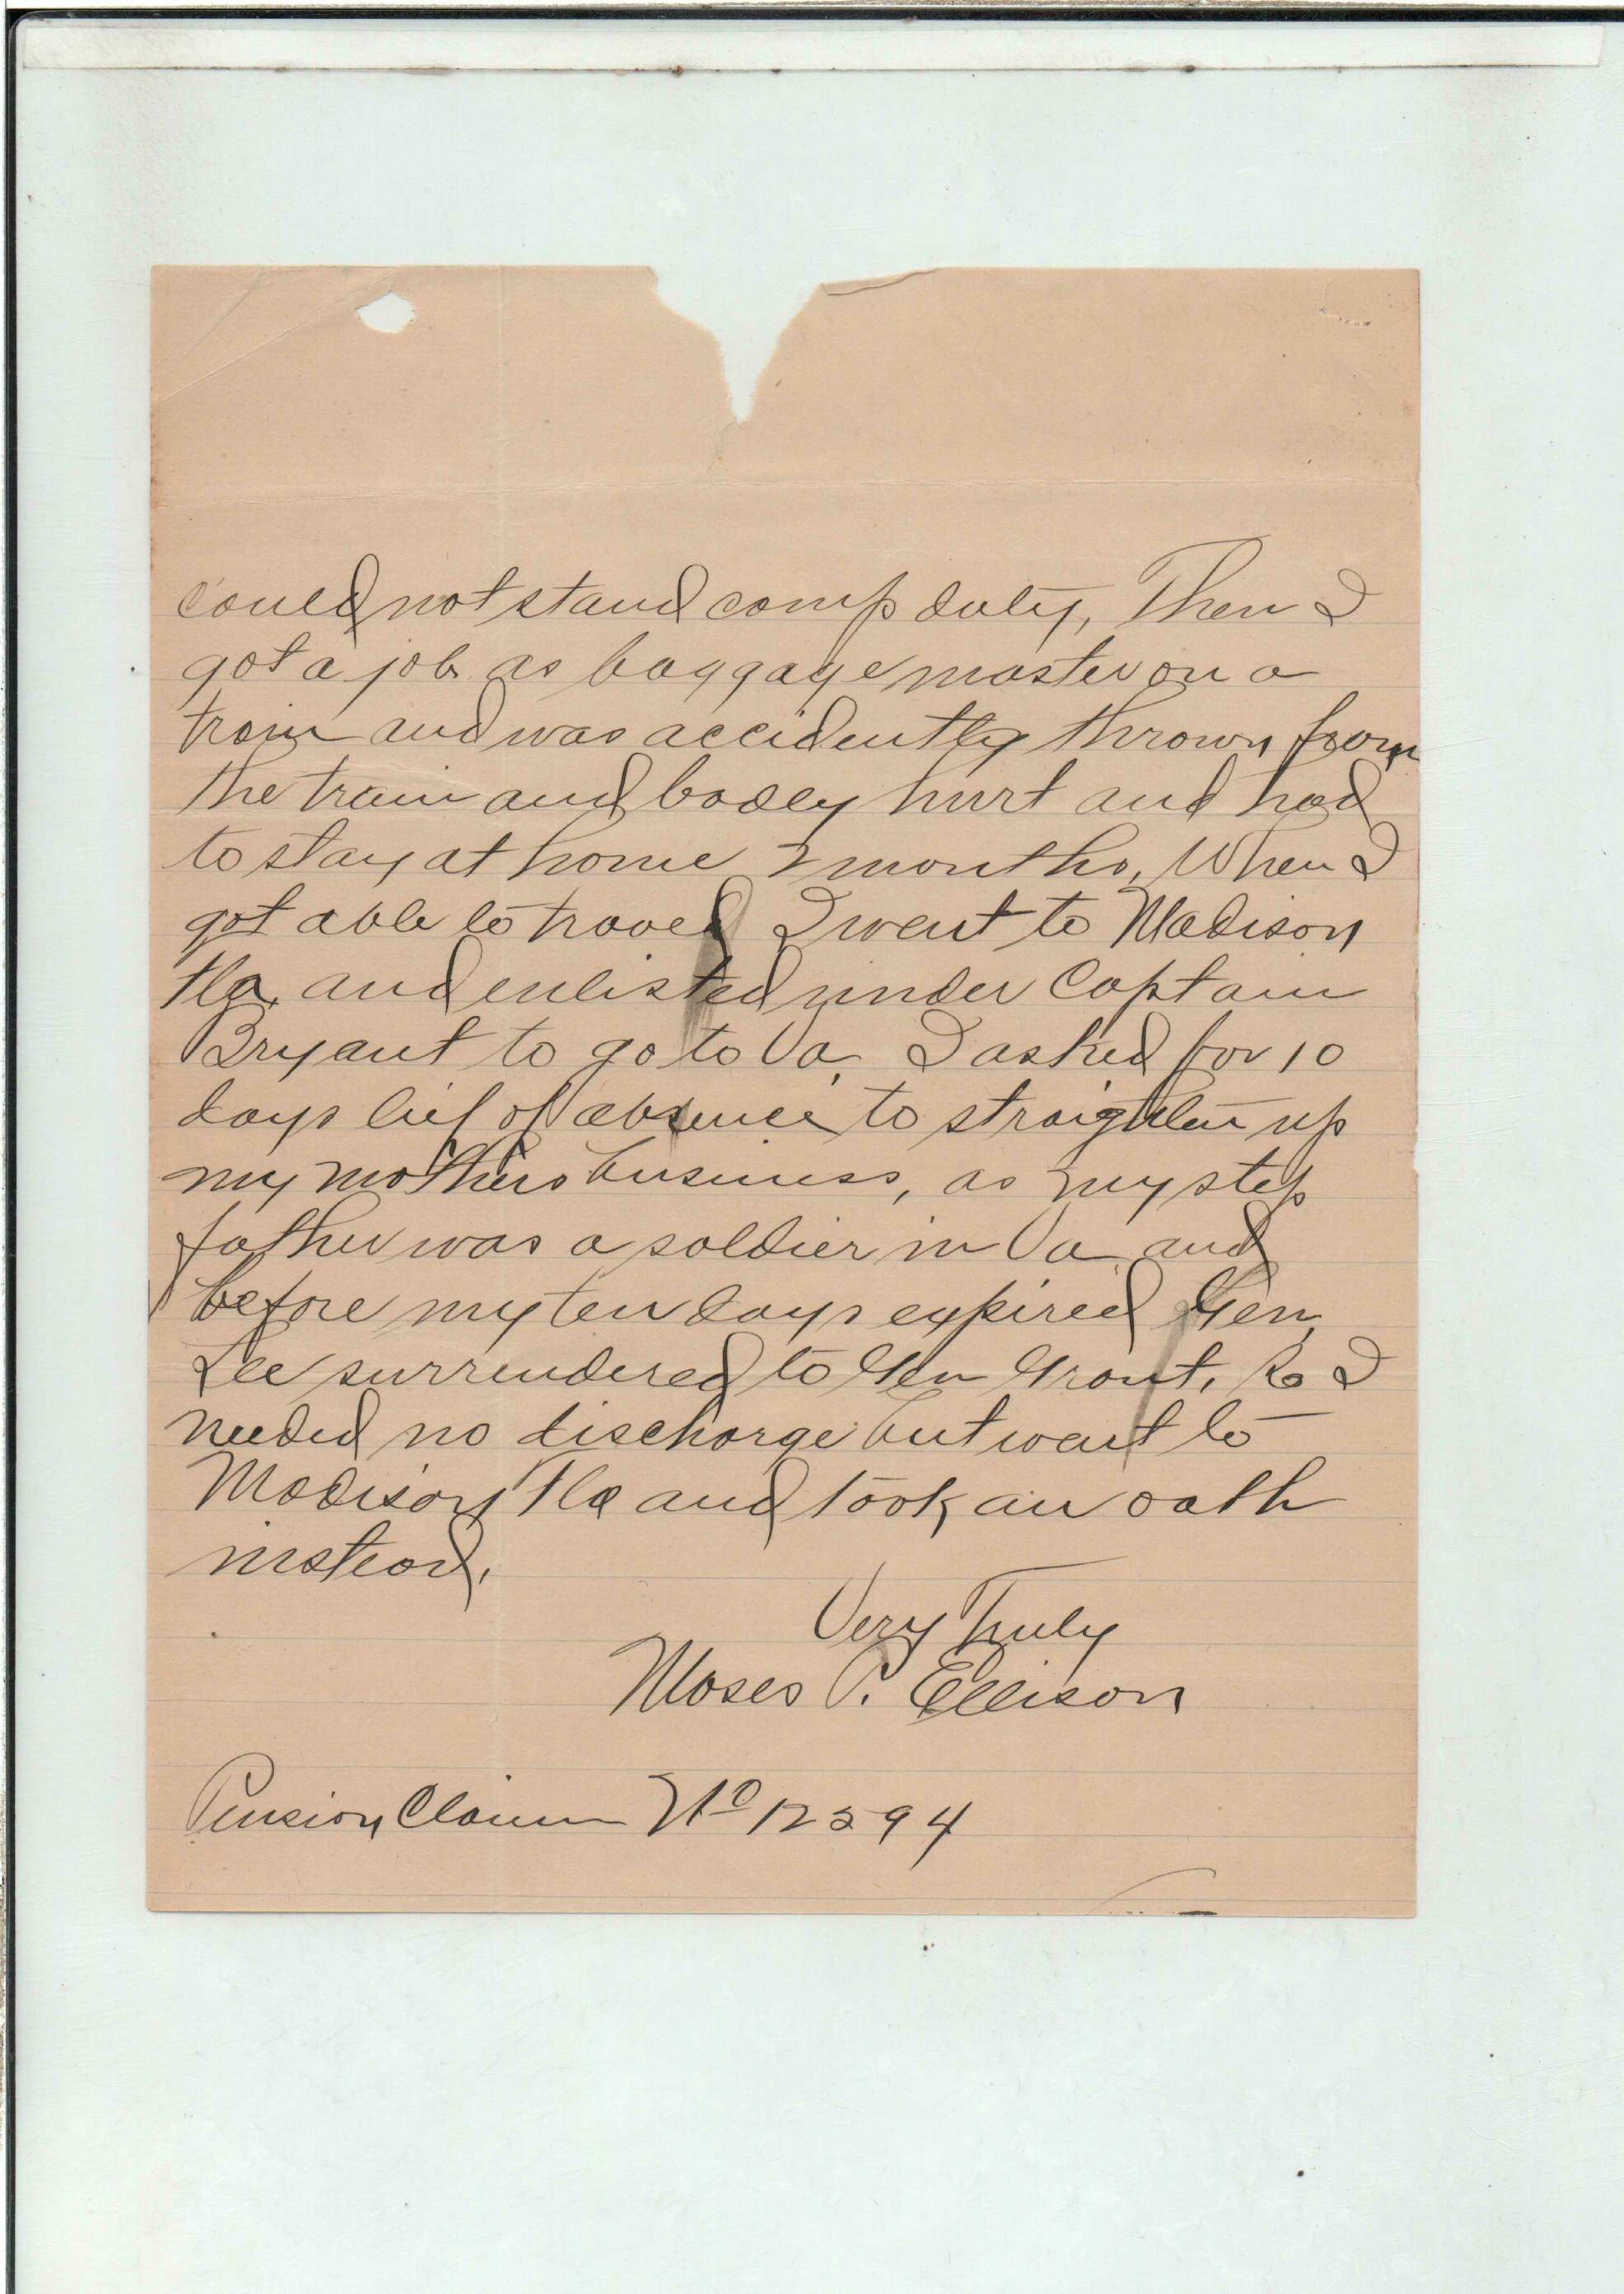 could not stand camp duty, Then I
got a job as baggage master on a
train and was accidently thrown from
the train and badly hurt and had
to stay at home 2 months, When I
got able to travel I went to Madison
Fla, and enlisted under Captain
Bryant to go to Va, I asked for 10
days lief of absence to straighten up
my mothers business, as my step
father was a soldier in Va and
before my ten days expired Gen,
Lee surrendered to Gen Grant, So I
needed no discharge but went to
Madison Fla and took an oath
instead,
Very Truly
Moses P. Ellison
Pension Claim No 12594